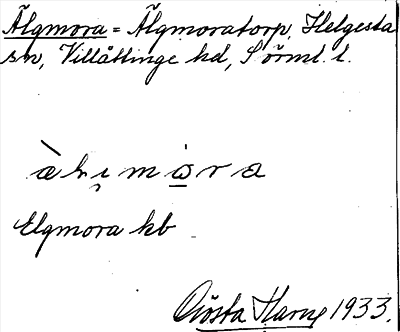 Älgmora = Älgmoratorp, Helgesta
sn, Villåttinge hd, Sörml. l.
Elgmora kb
Gösta Harng 1933.